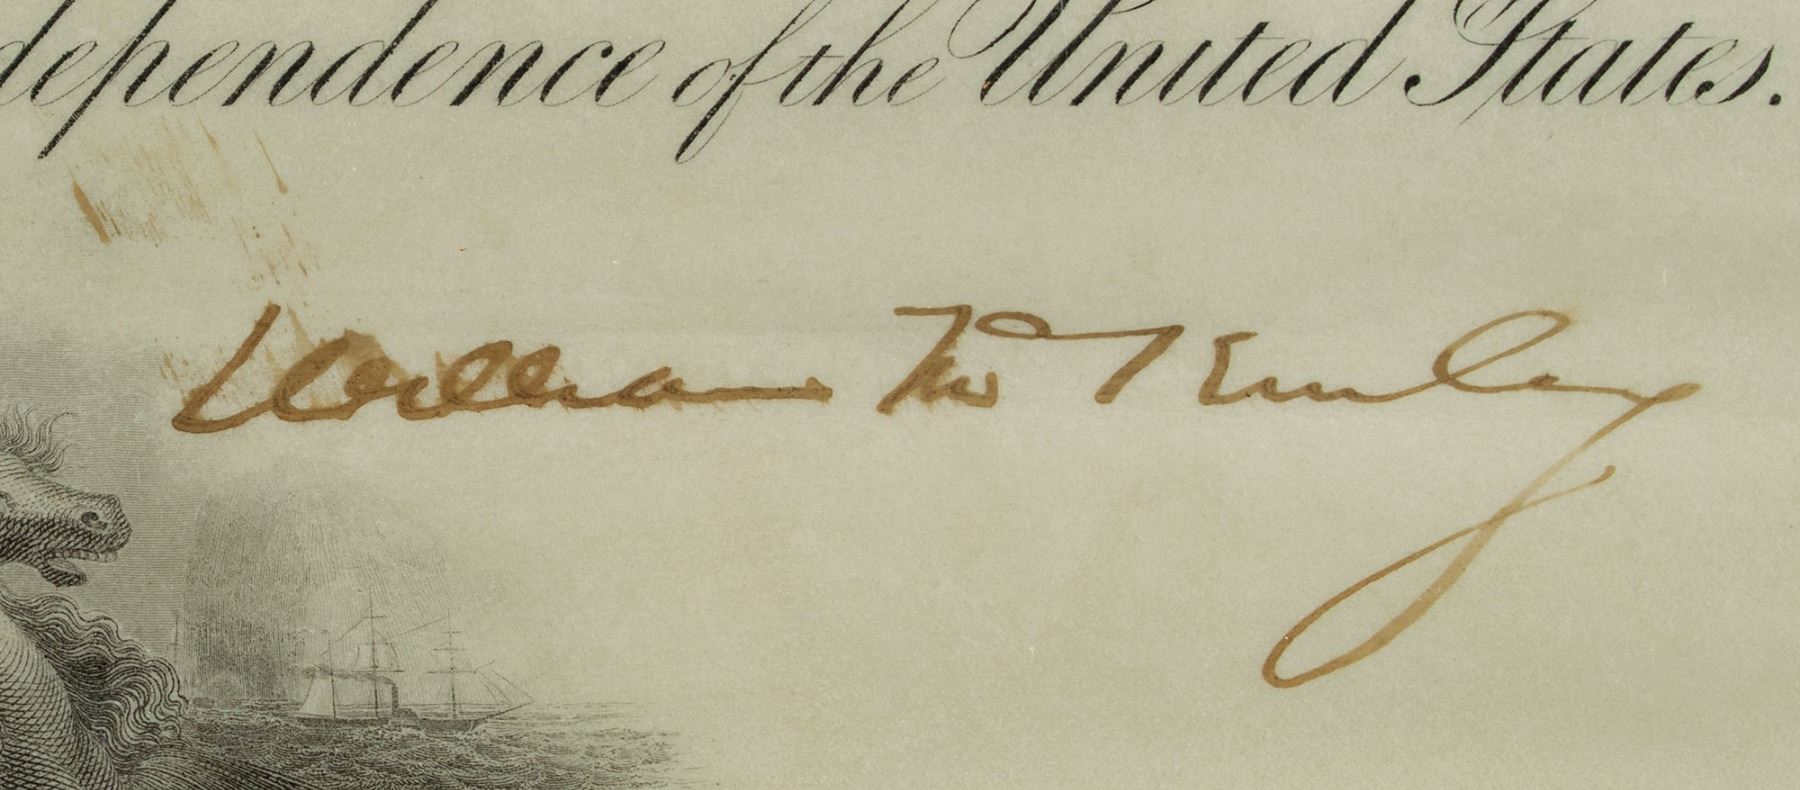 dependence of the United States.
William McKinley